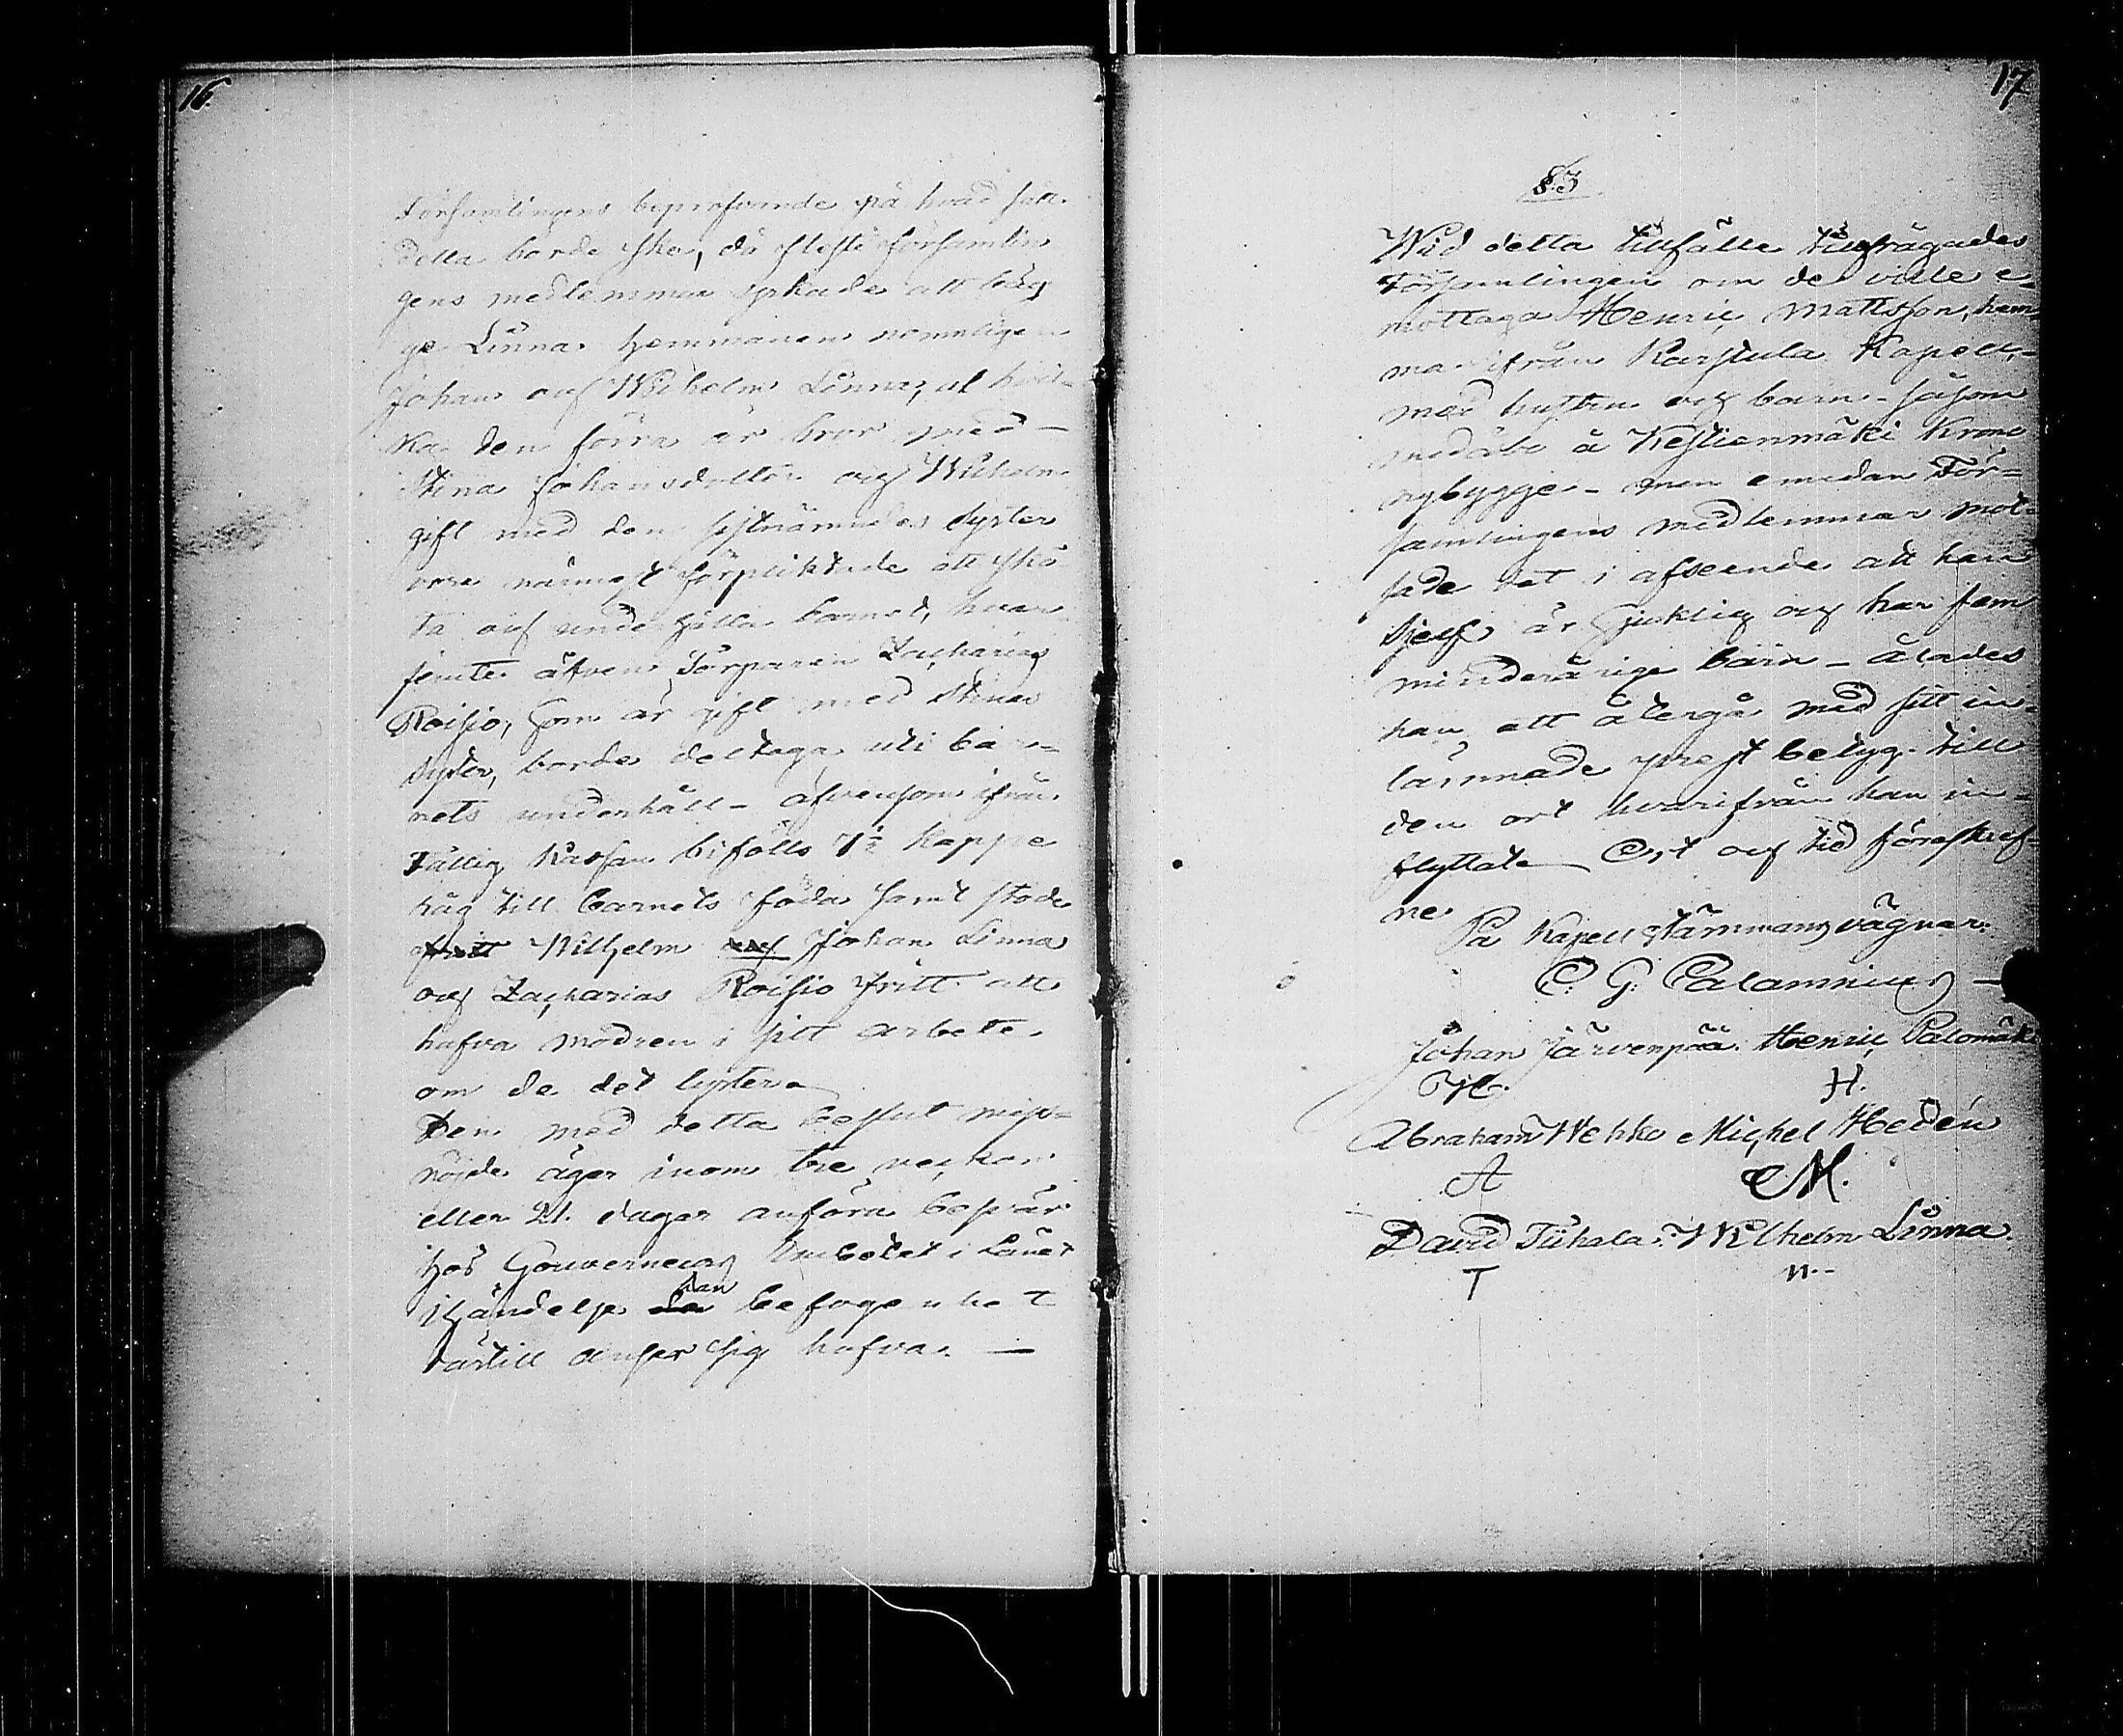 16.
Församlingens bepröfvande på hvad sätt
detta borde ske, då fleste församlin
gens medlemmar yrkade att bäg
ge Linna hemmanen nemnligen
Johan och Wilhelm Linna, af hvil-
ka den förra är bror med
Stina Johansdotter och Wilhelm
gift med den sistnämndes syster
vore närmast förpliktade att skö
ta och underhålla barnet, hvar
jemte äfven Torparen Zacharias
Roisio, som är gift med Stinas
syster, borde deltaga uti bar-
nets underhåll - äfvensom ifrån
Fattig Kassan bifölls 7½ kappe
råg till barnets föda samt stode
Wilhelm och Johan Linna
och Zacharias Roisio fritt att
hafva modren i sitt arbete
om de det lyster
Den med detta beslut miss-
nöjde äger inom tre veckor
eller 21. dagar anföra besvär
hos Gouverneurs Embetet i Länet
i händelse han befogenhet
därtill anser sig hafva. —
17
§.3
Wid detta tillfälle tillfrågades
Församlingen om de ville e-
mottaga Henric Mattsson, hem
ma ifrån Karstula Kapell,
med hustru och barn - såsom
medåbo å Kestienmäki Krono
nybygge - men emedan För-
samlingens medlemmar mot
sade det i afseende att han
sjelf är sjuklig och har fem
minderårige barn - ålades
han att återgå med sitt in-
lämnade prest betyg till
den ort hvarifrån han in-
flyttat Ort och tid föreskref-
ne
På Kapellstämmans vägnar:
C. G. Calamnius
Johan Järvenpää. Henric Palomäki
H.
Abraham Wehko Michel Hedén
A M.
David Tiihala. Wilhelm Linna.
T n.